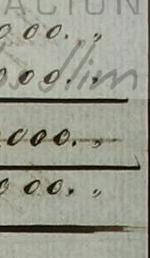 ACION
000. „
000. „
000. „
000. „